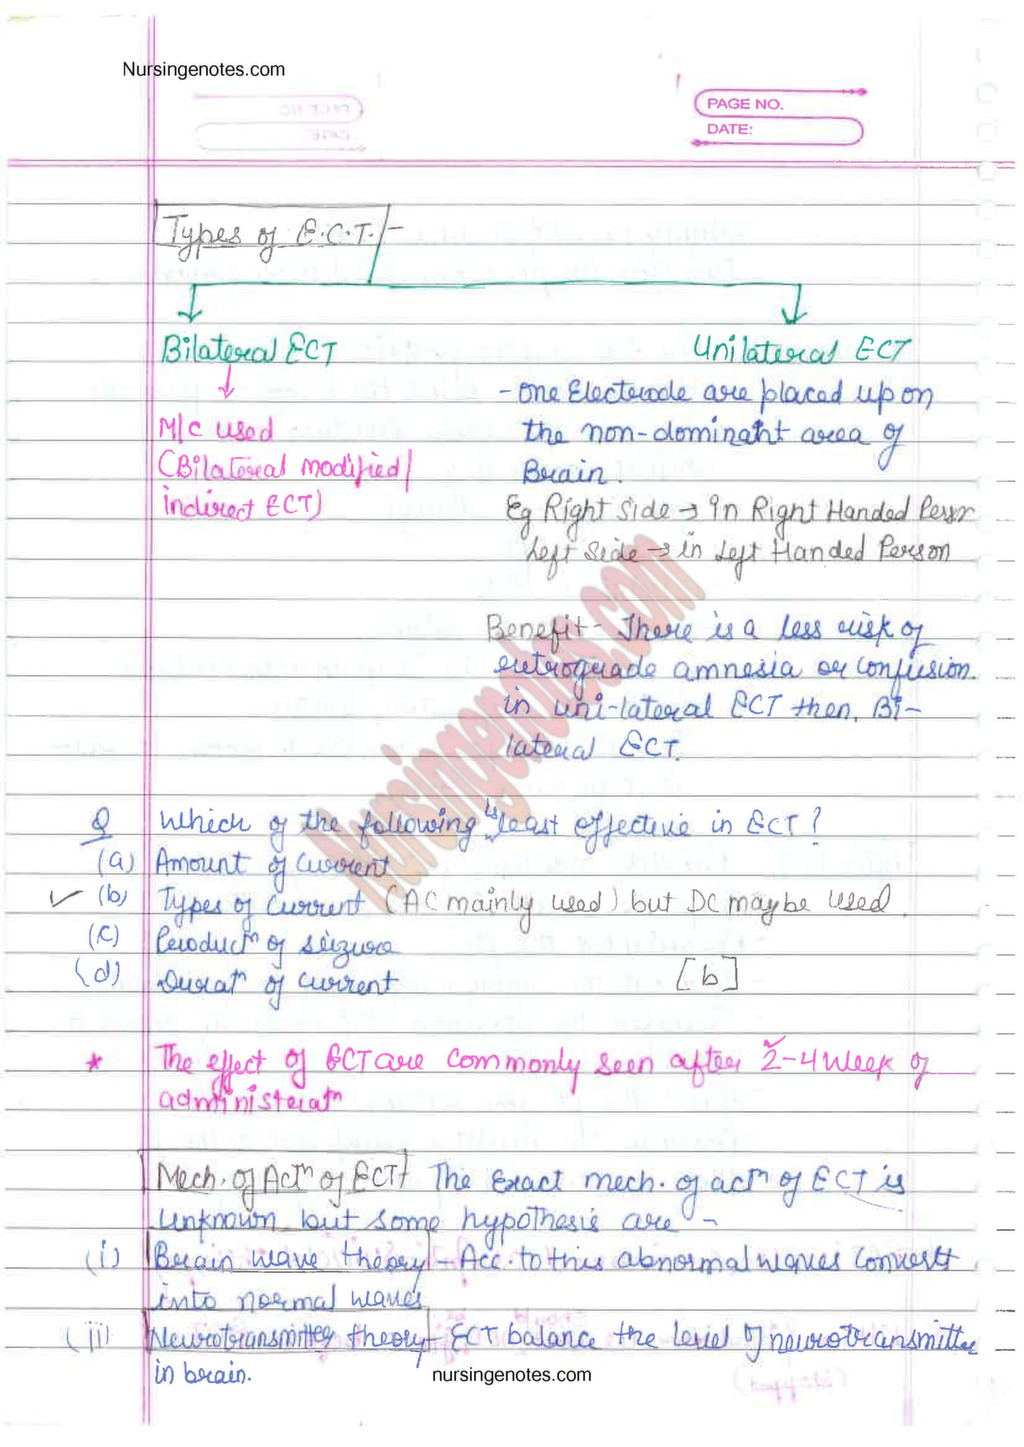 Nursingenotes.com
PAGE NO.
DATE:
Types of E.C.T. -
Bilateral ECT
Unilateral ECT
M/c used
(Bilateral modified/
indirect ECT)
- One Electrode are placed up on
the non-dominant area of
Brain.
Eg Right Side → In Right Handed
Left Side → in Left Handed Person
Benefit - There is a less risk of
retrograde amnesia or confusion.
in uni-lateral ECT then. Bi-
lateral ECT.
Q Which of the following is least effective in ECT?
(a) Amount of Current
(b) Types of Current (AC mainly used) but DC may be used.
(c) Productn of seizure
(d) Duratn of current [b]
* The effect of ECT are commonly seen after 2-4 Week of
administratn
Mech. of Actn of ECT The Exact mech. of actn of ECT is
Unknown but some hypothesis are -
(i) Brain wave theory - Acc. to this abnormal waves convert
into normal waves
(ii) Neurotransmitter theory - ECT balance the level of neurotransmitter
in brain.
nursingenotes.com
Nursingenotes.com